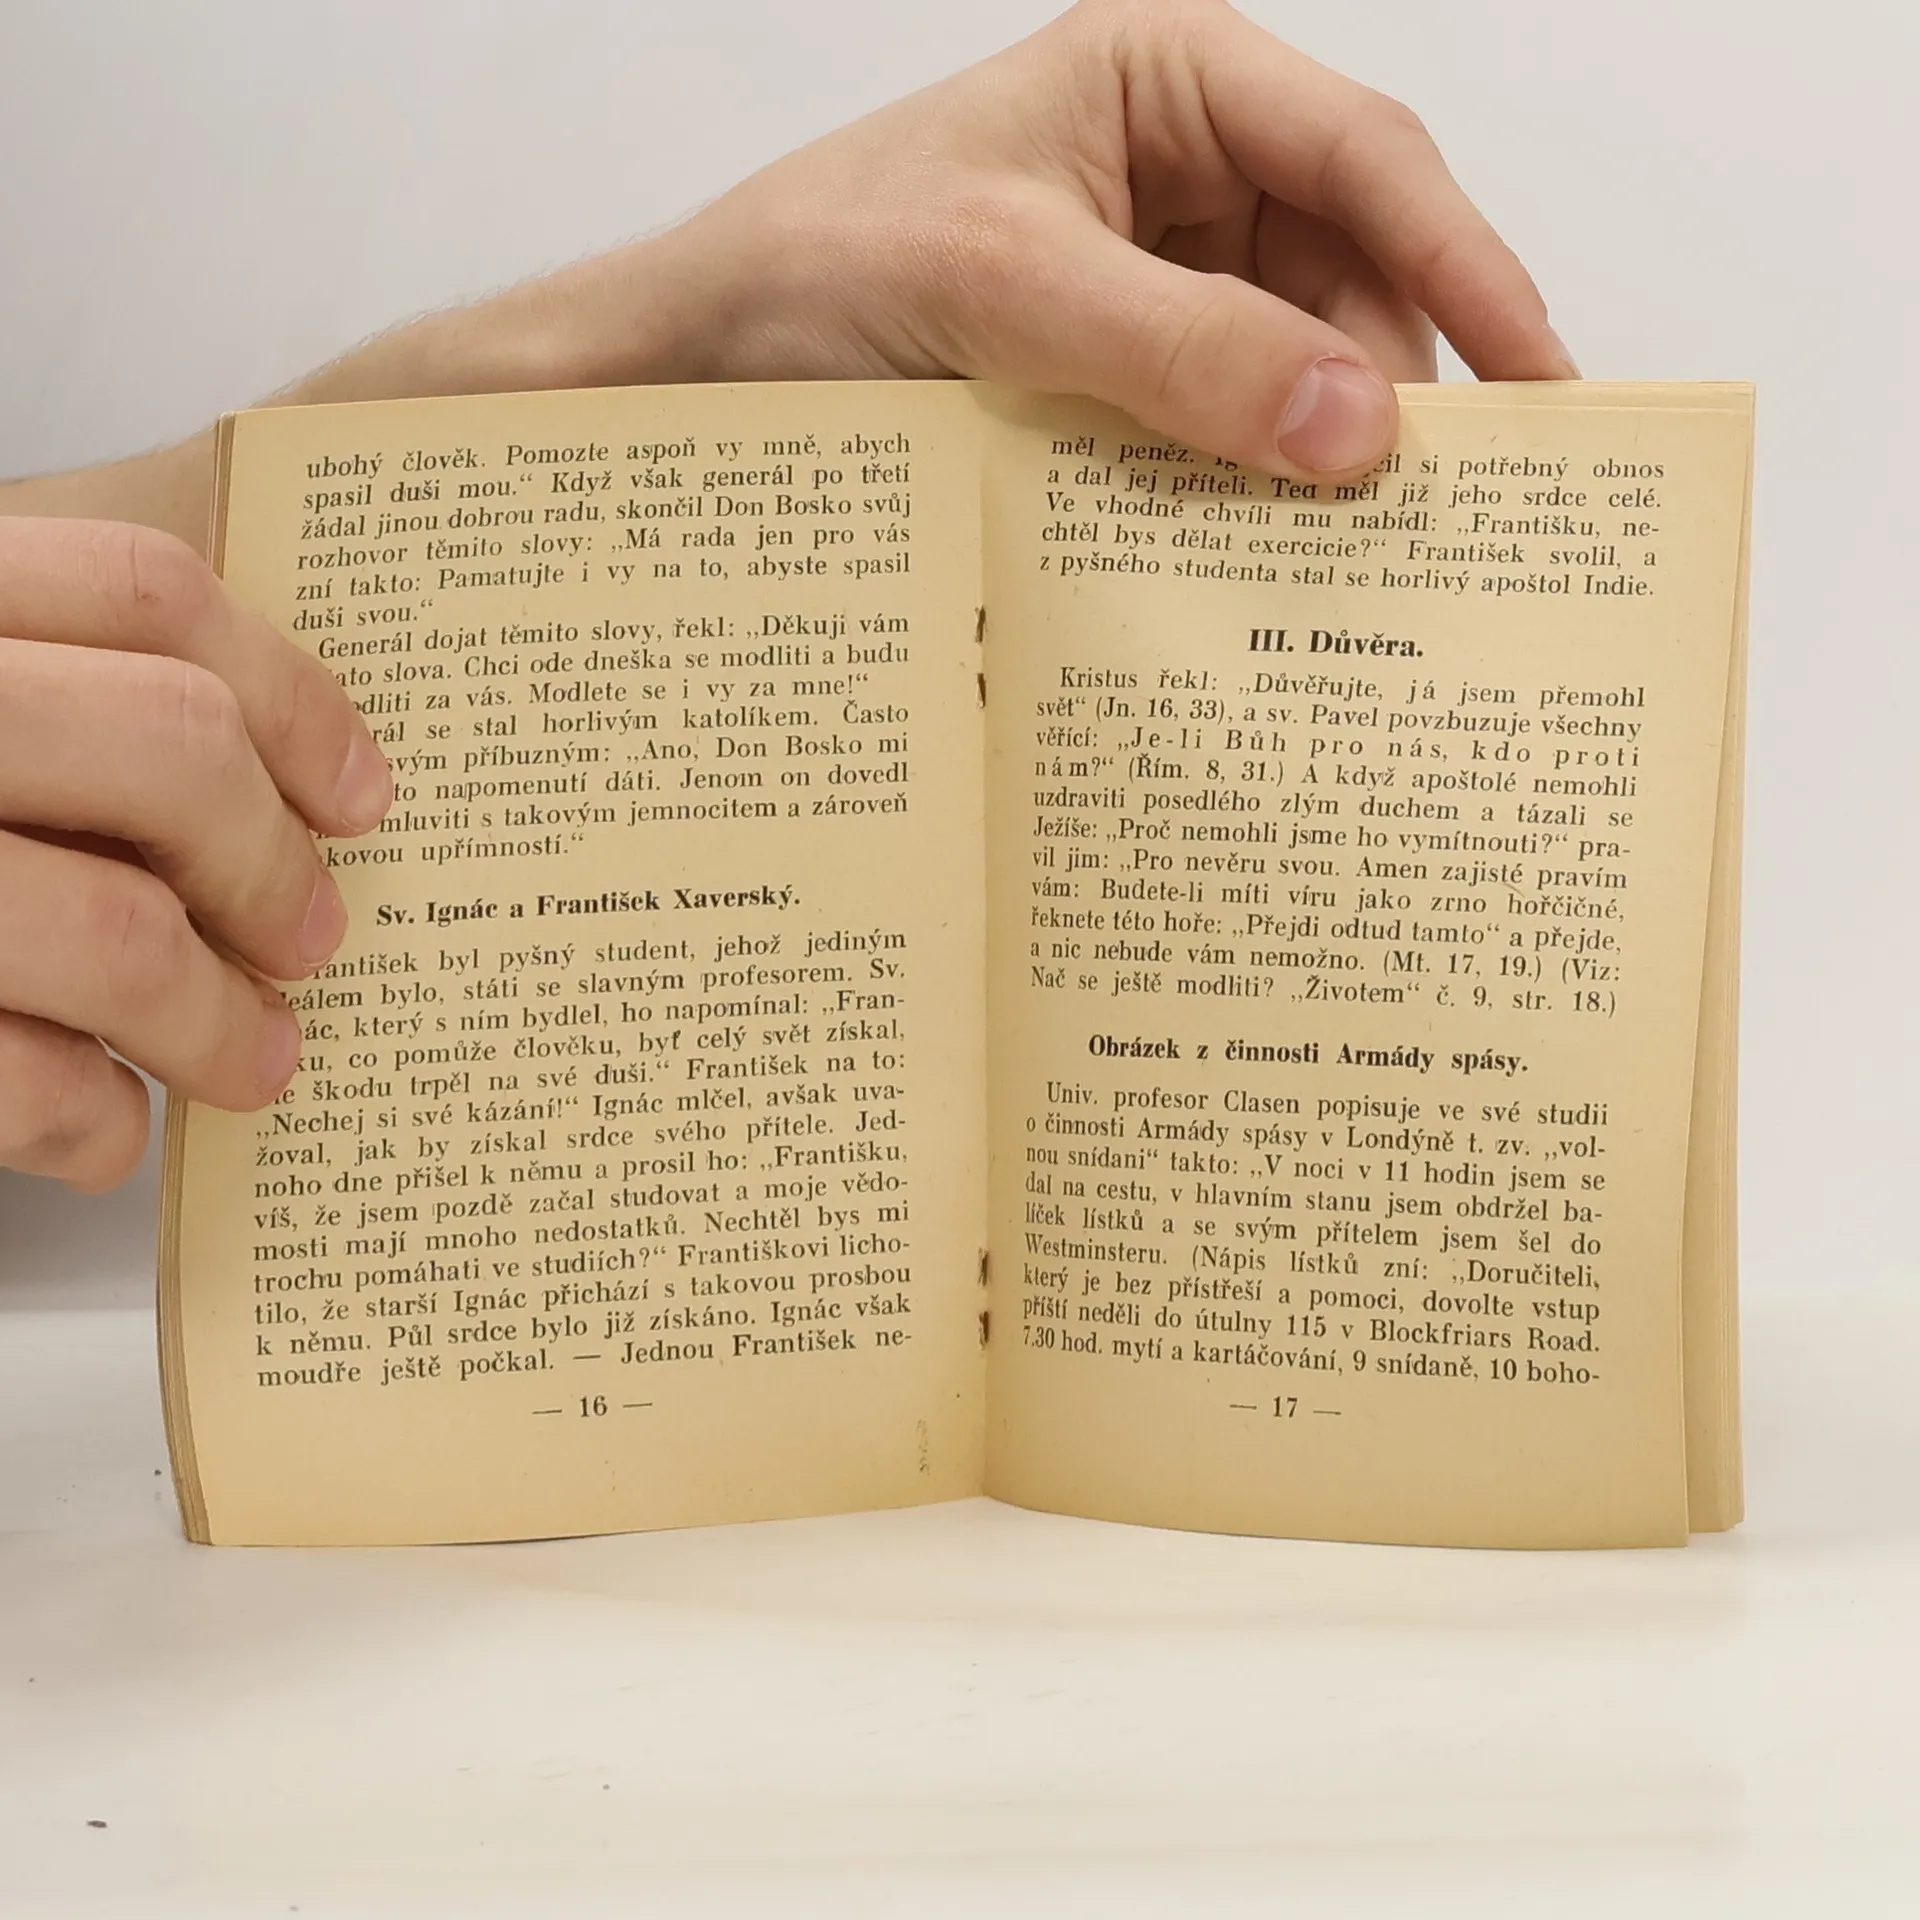 ubohý člověk. Pomozte aspoň vy mně, abych
spasil duši mou.“ Když však generál po třetí
žádal jinou dobrou radu, skončil Don Bosko svůj
rozhovor těmito slovy: „Má rada jen pro vás
zní takto: Pamatujte i vy na to, abyste spasil
duši svou.“
Generál dojat těmito slovy, řekl: „Děkuji vám
slova. Chci ode dneška se modliti a budu
za vás. Modlete se i vy za mne!“
se stal horlivým katolíkem. Často
svým příbuzným: „Ano, Don Bosko mi
napomenutí dáti. Jenom on dovedl
mluviti s takovým jemnocitem a zároveň
upřímností.“
Sv. Ignác a František Xaverský.
byl pyšný student, jehož jediným
bylo, státi se slavným profesorem. Sv.
který s ním bydlel, ho napomínal: „Fran-
co pomůže člověku, byť celý svět získal,
škodu trpěl na své duši.“ František na to:
„Nechej si své kázání!“ Ignác mlčel, avšak uva-
žoval, jak by získal srdce svého přítele. Jed-
noho dne přišel k němu a prosil ho: „Františku,
víš, že jsem pozdě začal studovat a moje vědo-
mosti mají mnoho nedostatků. Nechtěl bys mi
trochu pomáhati ve studiích?“ Františkovi licho-
tilo, že starší Ignác přichází s takovou prosbou
k němu. Půl srdce bylo již získáno. Ignác však
moudře ještě počkal. — Jednou František ne-
— 16 —
měl peněz. si potřebný obnos
a dal jej příteli. Teď měl již jeho srdce celé.
Ve vhodné chvíli mu nabídl: „Františku, ne-
chtěl bys dělat exercicie?“ František svolil, a
z pyšného studenta stal se horlivý apoštol Indie.
III. Důvěra.
Kristus řekl: „Důvěřujte, já jsem přemohl
svět“ (Jn. 16, 33), a sv. Pavel povzbuzuje všechny
věřící: „Je-li Bůh pro nás, kdo proti
nám?“ (Řím. 8, 31.) A když apoštolé nemohli
uzdraviti posedlého zlým duchem a tázali se
Ježíše: „Proč nemohli jsme ho vymítnouti?“ pra-
vil jim: „Pro nevěru svou. Amen zajisté pravím
vám: Budete-li míti víru jako zrno hořčičné,
řeknete této hoře: „Přejdi odtud tamto“ a přejde,
a nic nebude vám nemožno. (Mt. 17, 19.) (Viz:
Nač se ještě modliti? „Životem“ č. 9, str. 18.)
Obrázek z činnosti Armády spásy.
Univ. profesor Clasen popisuje ve své studii
o činnosti Armády spásy v Londýně t. zv. „vol-
nou snídani“ takto: „V noci v 11 hodin jsem se
dal na cestu, v hlavním stanu jsem obdržel ba-
líček lístků a se svým přítelem jsem šel do
Westminsteru. (Nápis lístků zní: „Doručiteli,
který je bez přístřeší a pomoci, dovolte vstup
příští neděli do útulny 115 v Blockfriars Road.
7.30 hod. mytí a kartáčování, 9 snídaně, 10 boho-
— 17 —